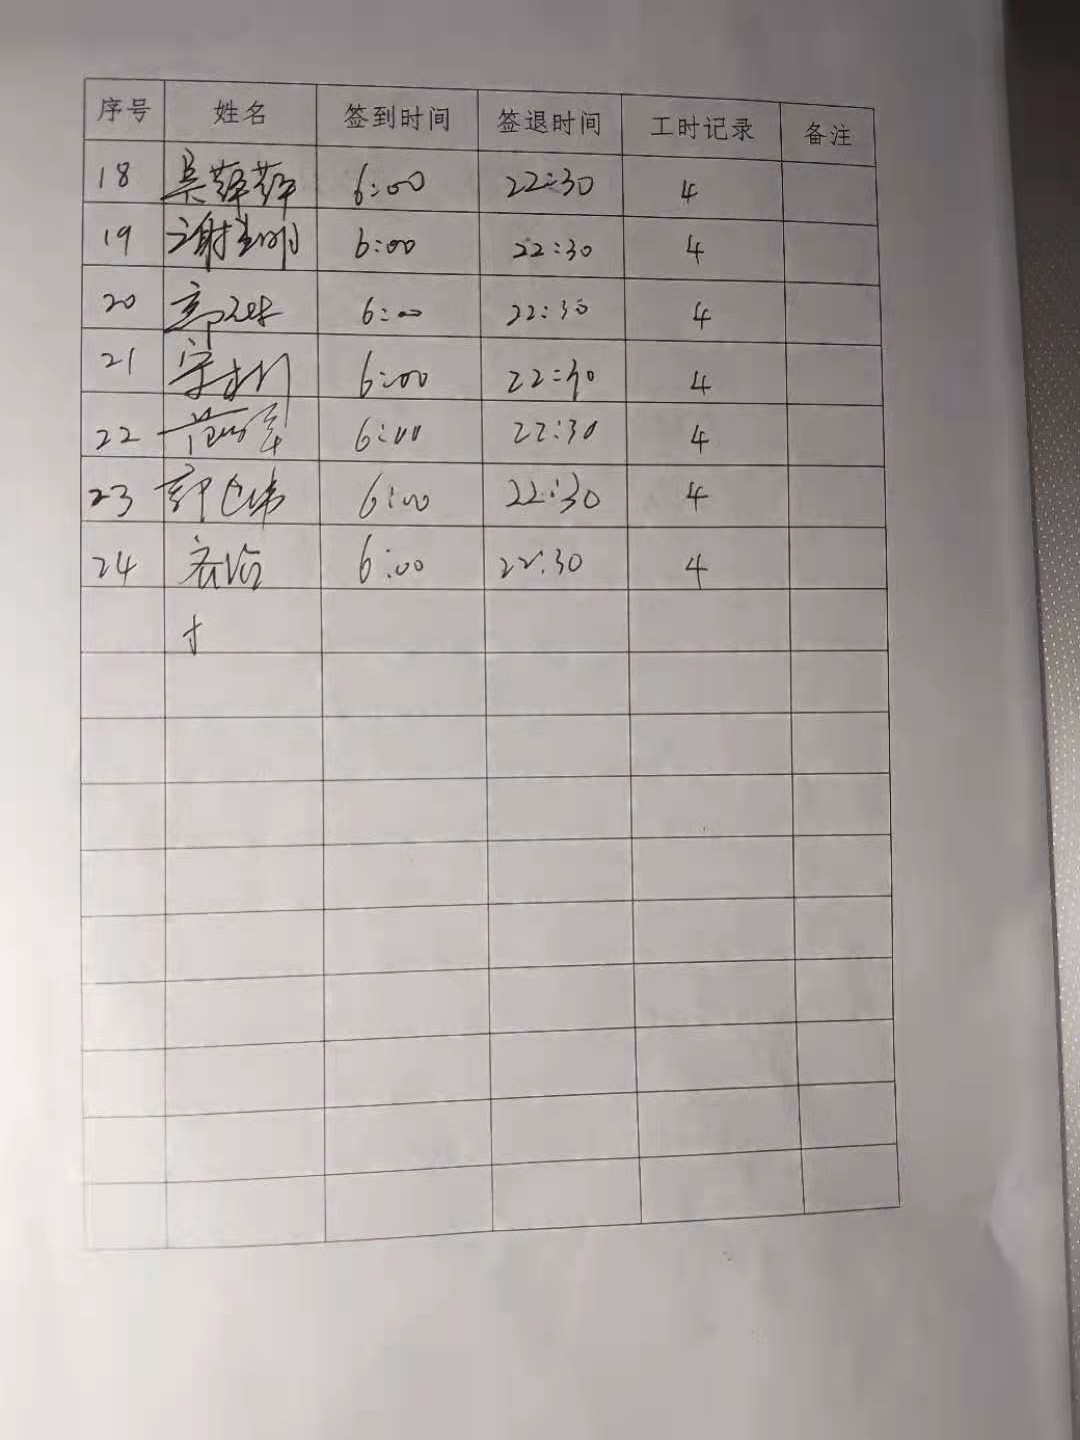 序号 姓名 签到时间 签退时间 工时记录 备注
18 吴萍萍 6:00 22:30 4
19 谢 明 6:00 22:30 4
20 6:00 22:30 4
21 6:00 22:30 4
22 6:00 22:30 4
23 6:00 22:30 4
24 6:00 22:30 4